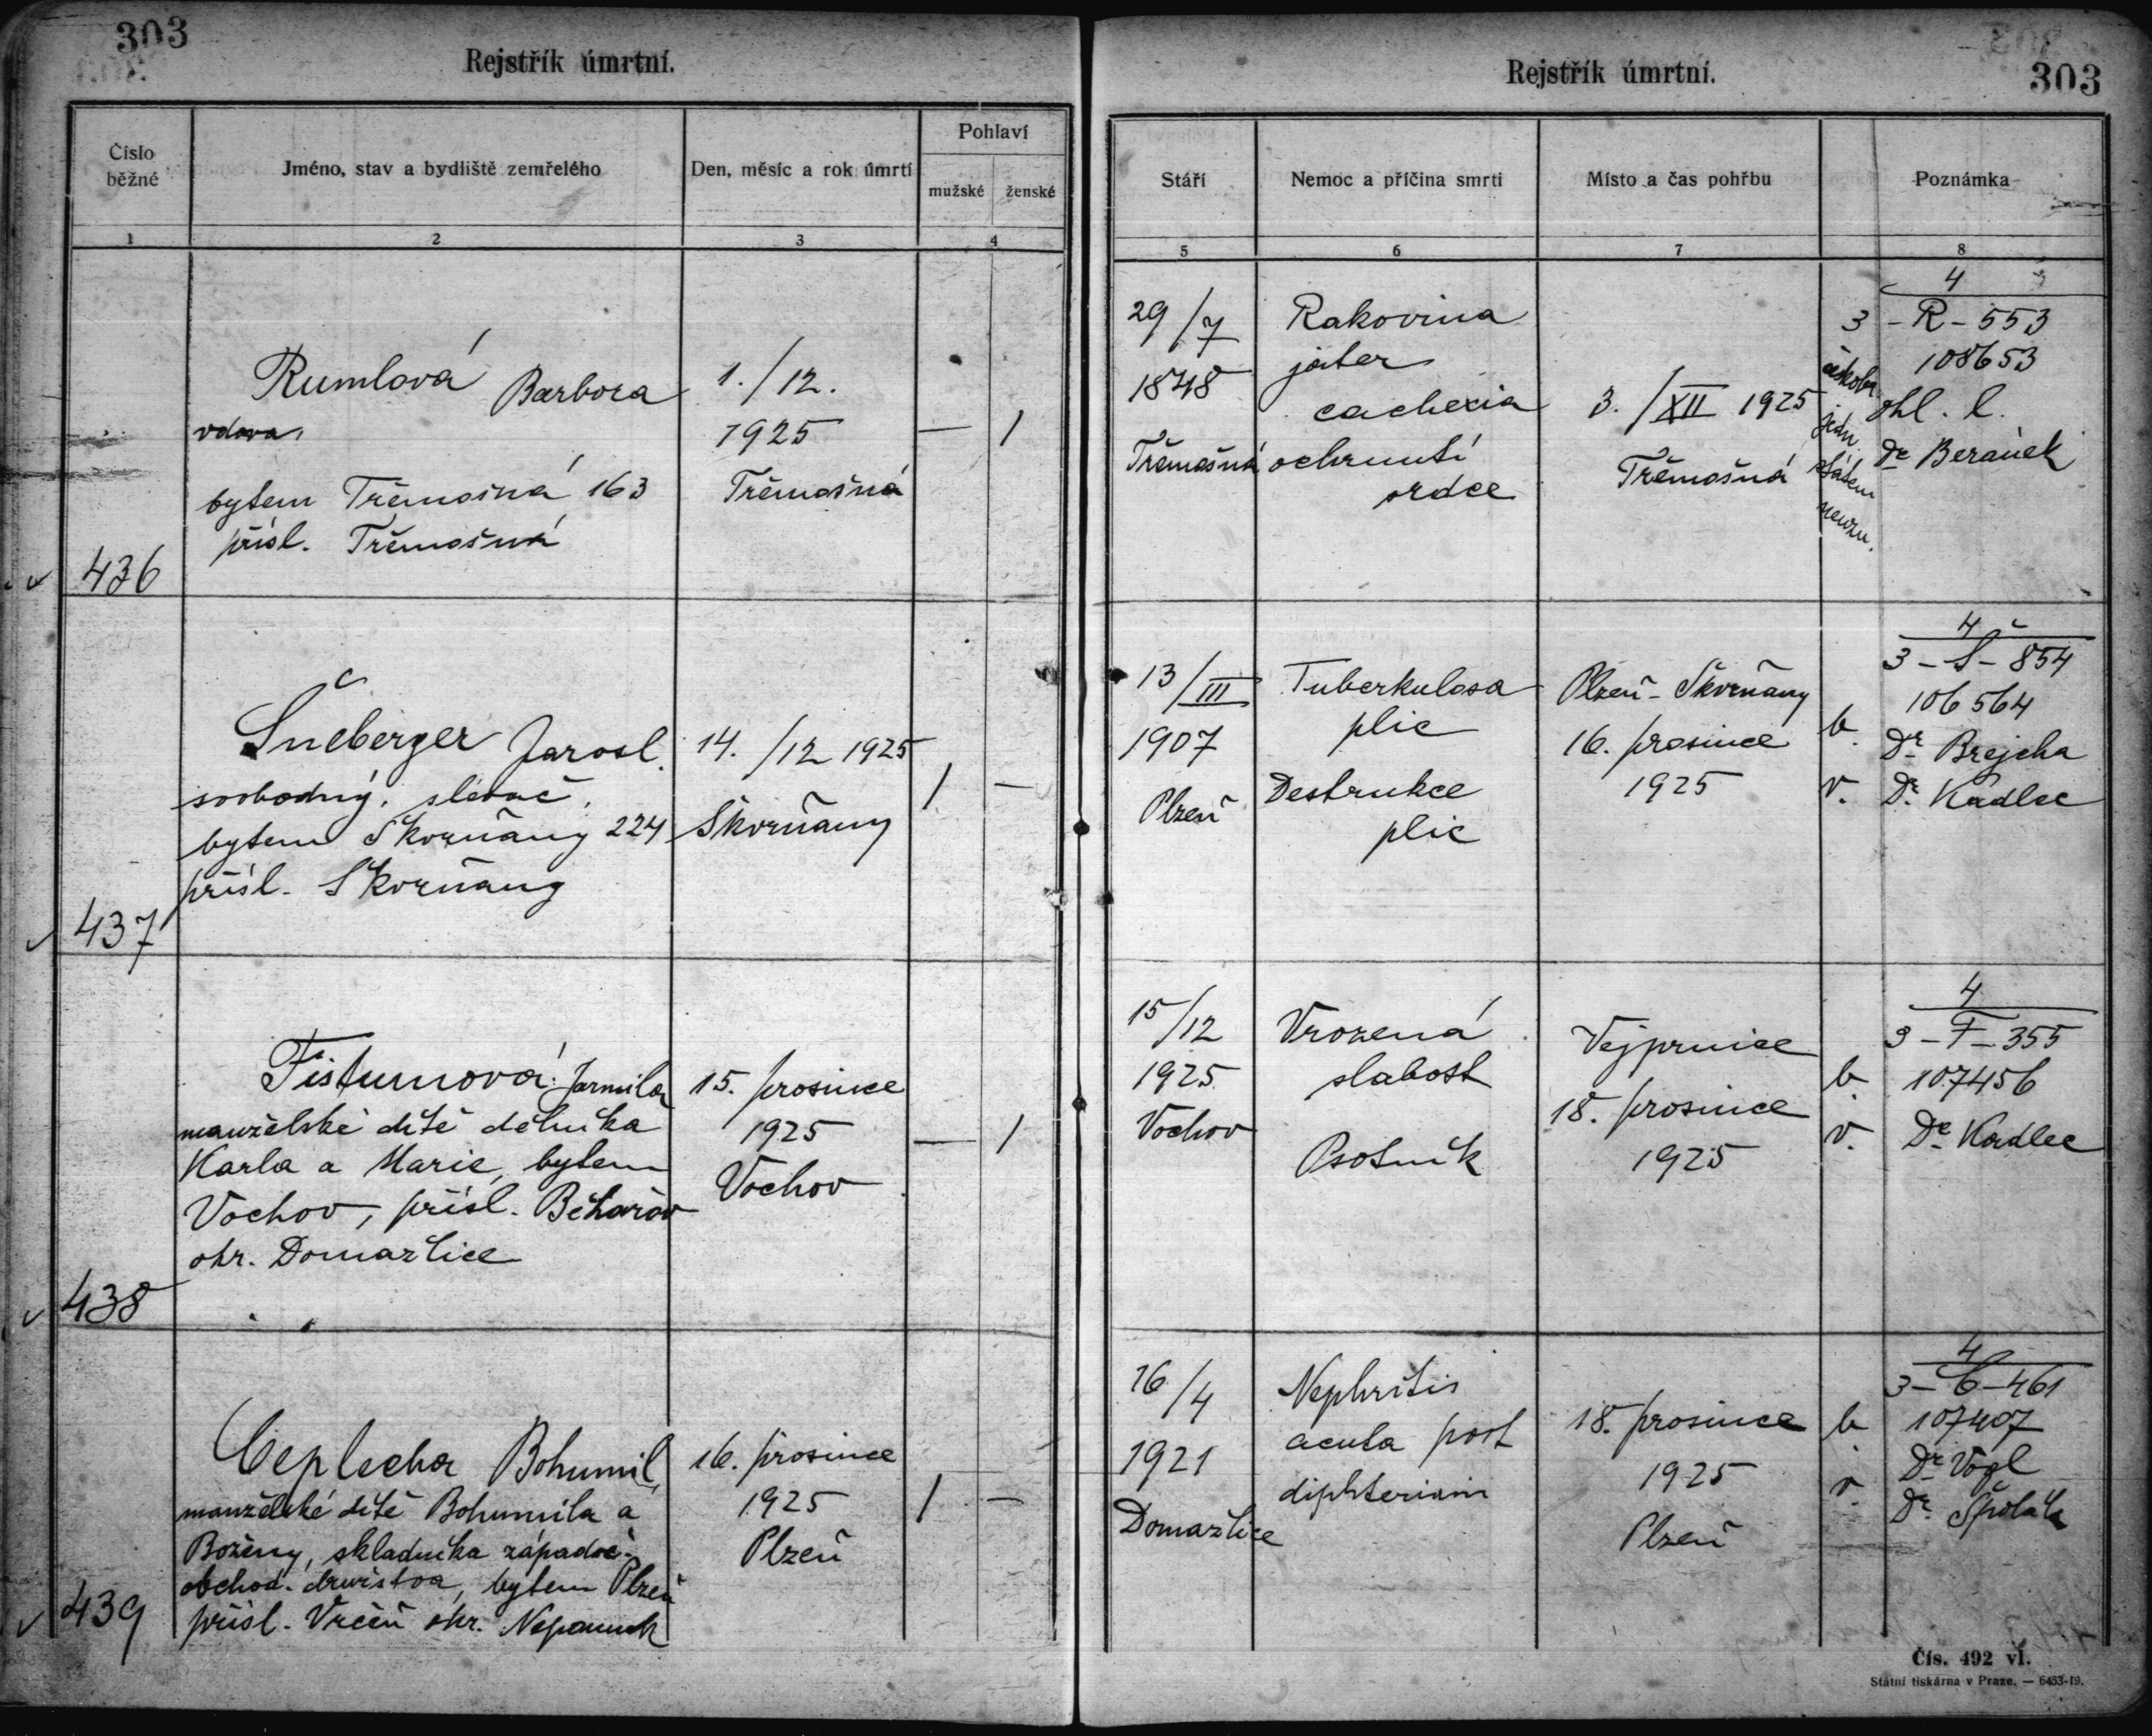 303
Rejstřík úmrtní.
Číslo
běžné
Jméno, stav a bydliště zemřelého
Den, měsíc a rok úmrtí
Pohlaví
mužské
ženské
1
2
3
4
Rumlová Barbora
vdova,
bytem Třemošná 163
přísl. Třemošná
436
1./12.
1925
Třemošná
— /
Šneberger Jarosl.
svobodný, slévač,
bytem Škvrňany 224
přísl. Škvrňany
437
14./12 1925
Škvrňany
/ —
Fistumová Jarmila
manželské dítě dělníka
Karla a Marie, bytem
Vochov, přísl. Běhařov
okr. Domažlice
438
15. prosince
1925
Vochov
— /
Ceplecha Bohumil,
manželské dítě Bohumila a
Boženy, skladníka západoč.
obchod. družstva, bytem Plzeň
přísl. Vrčeň okr. Nepomuk
439
16. prosince
1925
Plzeň
/ —
Rejstřík úmrtní.
303
Stáří
Nemoc a příčina smrti
Místo a čas pohřbu
Poznámka
5
6
7
8
29/7
1848
Třemošná
Rakovina
jater
cachexia
ochrnutí
srdce
3./XII 1925
Třemošná
českobr.
jedn.
státem
neuzn.
4
3-R-553
108653
ohl. l.
Dr. Beránek
13/III
1907
Plzeň
Tuberkulosa
plic
Destrukce
plic
Plzeň-Škvrňany
16. prosince
1925
b.
v.
4
3-Š-854
106564
Dr. Brejcha
Dr. Kadlec
15/12
1925.
Vochov
Vrozená
slabost
Psotník
Vejprnice
18. prosince
1925
b.
v.
4
3-F-355
107456
Dr. Kadlec
16/4
1921
Domažlice
Nephritis
acuta post
diphteriam
18. prosince
1925
Plzeň
b.
v.
4
3-C-461
107407
Dr. Vogl
Dr. Špolák
Čís. 492 vl.
Státní tiskárna v Praze. — 6453-19.